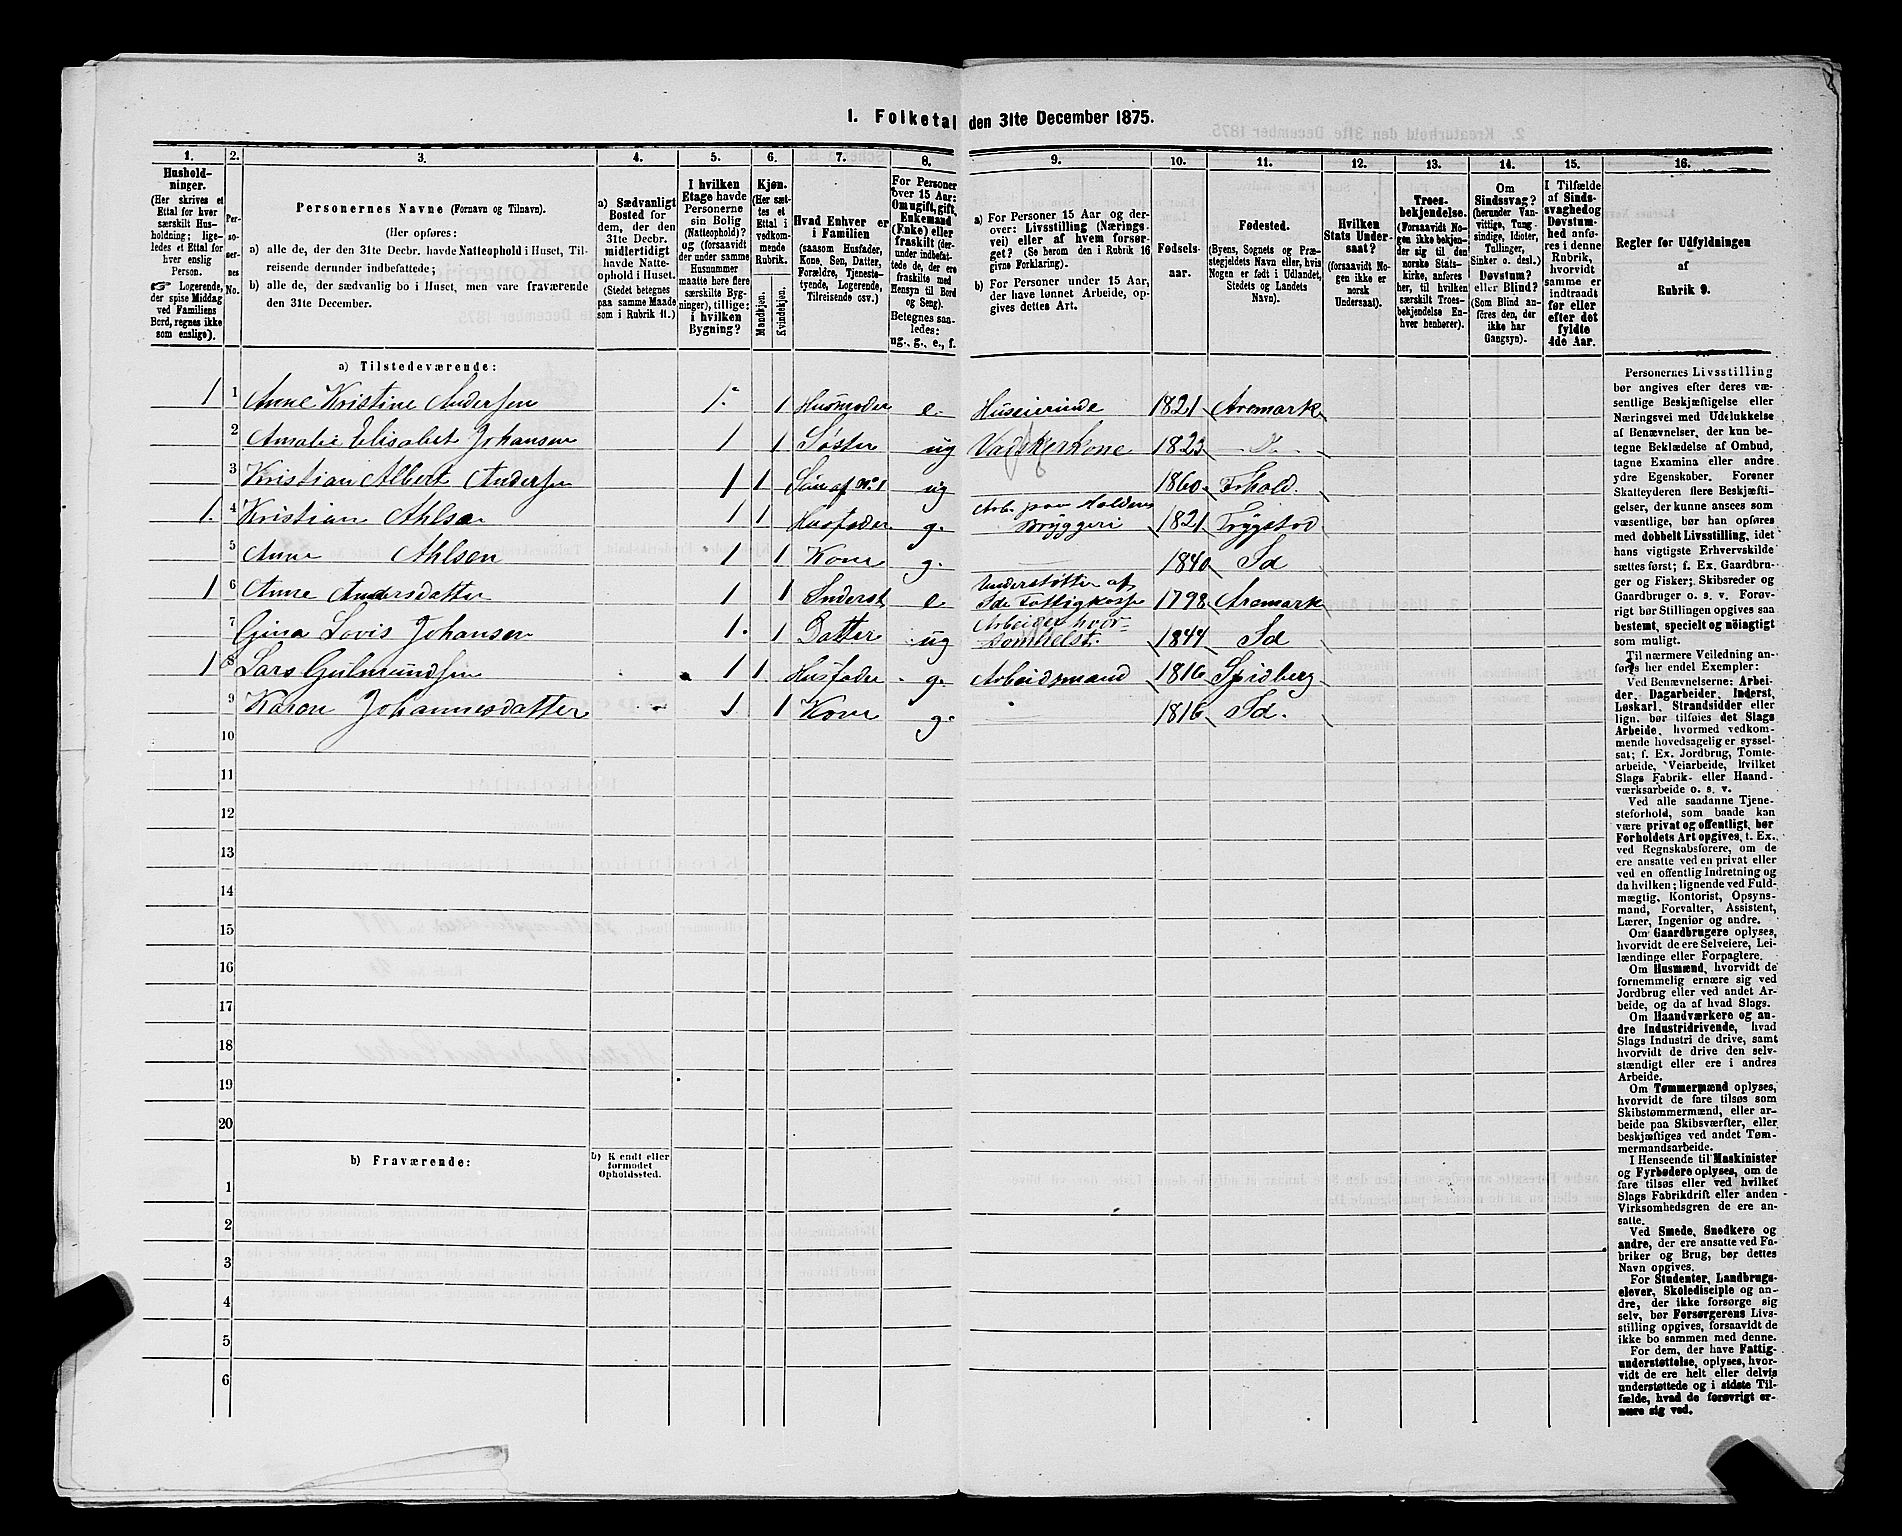 1. Folketal den 31te December 1875.
1. 2. 3. 4. 5. 6. 7. 8. 9. 10. 11. 12. 13. 14. 15. 16.
Hushold-
ninger.
(Her skrives et
Ettal for hver
særskilt Hus-
holdning; lige-
ledes et Ettal for
hver enslig
Person.
☞ Logerende,
der spise Middag
ved Familiens
Bord, regnes ikke
som enslige).
Per-
so-
ner-
nes
No.
Personernes Navne (Fornavn og Tilnavn).
(Her opføres:
a) alle de, der den 31te Decbr. havde Natteophold i Huset, Til-
reisende derunder indbefattede;
b) alle de, der sædvanlig bo i Huset, men vare fraværende
den 31te December.
a) Sædvanligt
Bosted for
dem, der den
31te Decbr.
midlertidigt
havde Natte-
ophold i Huset.
(Stedet betegnes
paa samme Maade
som i Rubrik 11.)
I hvilken
Etage havde
Personerne
sin Bolig
(Natteophold)?
og (forsaavidt
der under samme
Husnummer
maatte høre flere
særskilte Byg-
ninger), tillige:
i hvilken
Bygning?
Kjøn.
(Her sæt-
tes et
Ettal i
vedkom-
mende
Rubrik.
Mandkjøn.
Kvindekjøn.
Hvad Enhver er
i Familien
(saasom Husfader,
Kone, Søn, Datter,
Forældre, Tjeneste-
tyende, Logerende,
Tilreisende osv.)
For Personer
over 15 Aar:
Om ugift, gift,
Enkemand
(Enke) eller
fraskilt (der-
under indbefat-
tede de, der ere
fraskilte med
Hensyn til Bord
og Seng).
Betegnes saa-
ledes:
ug., g., e., f.
a) For Personer 15 Aar og der-
over: Livsstilling (Nærings-
vei) eller af hvem forsør-
get? (Se herom den i Rubrik 16
givne Forklaring).
b) For Personer under 15 Aar,
der have lønnet Arbeide, op-
gives dettes Art.
Fødsels-
aar.
Fødested.
(Byens, Sognets og Præ-
stegjeldets Navn eller, hvis
Nogen er født i Udlandet,
Stedets og Landets
Navn).
Hvilken
Stats Under-
saat?
(forsaavidt No-
gen ikke er
norsk
Undersaat).
Troes-
bekjendelse.
(Forsaavidt No-
gen ikke bekjen-
der sig til den
norske Stats-
kirke, anføres
her, til hvilken
særskilt Troes-
bekjendelse En-
hver henhører).
Om
Sindssvag?
(herunder Van-
vittige, Tung-
sindige, Idioter,
Tullinger,
Sinker o. desl.)
Døvstum?
eller Blind?
(Som Blind an-
føres den, der
ikke har
Gangsyn).
I Tilfælde
af Sinds-
svaghed og
Døvstum-
hed anfø-
res i denne
Rubrik,
hvorvidt
samme er
indtraadt
før eller
efter det
fyldte
4de Aar.
Regler for Udfyldningen
af
Rubrik 9.
a) Tilstedeværende:
1 1 Anne Kristine Andersen 1. 1 Husmoder e. Huseierinde 1821 Aremark
2 Amalie Elisabet Johansen 1 1 Søster ug Vadskerkone 1823 — D. —
3 Kristian Albert Andersen 1 1 Søn af No 1 ug 1860
1. 4 Kristian Ahlsen 1 1 Husfader g. Arb. paa Haldens Bryggeri 1821 Trygstad
5 Anne Ahlsen 1 1 Kone g. 1840 Id
1 6 Anne Andersdatter 1 1 Inderst e Understøttes af Ide Fattigkasse 1798 Aremark
7 Gina Lovis Johansen 1. 1 Datter ug Arbeider hvorsomhelst. 1844 Id
1 8 Lars Gulmundsen 1 1 Husfader g. Arbeidsmand 1816 Spidberg
9 Karen Johannesdatter 1 1 Kone g. 1816 Id.
10
11
12
13
14
15
16
17
18
19
20
b) Fraværende:
b) Kjendt eller
formodet
Opholdssted.
1
2
3
4
5
6
Personernes Livsstilling
bør angives efter deres væ-
sentlige Beskjæftigelse eller
Næringsvei med Udelukkelse
af Benævnelser, der kun be-
tegne Beklædelse af Ombud,
tagne Examina eller andre
ydre Egenskaber. Forener
Skatteyderen flere Beskjæfti-
gelser, der kunne ansees som
væsentlige, bør han opføres
med dobbelt Livsstilling, idet
hans vigtigste Erhvervskilde
sættes først; f. Ex. Gaardbru-
ger og Fisker; Skibsreder og
Gaardbruger o. s. v. Forøv-
rigt bør Stillingen opgives saa
bestemt, specielt og nøiagtigt
som muligt.
Til nærmere Veiledning an-
føres her endel Exempler:
Ved Benævnelserne: Arbei-
der, Dagarbeider, Inderst,
Løskarl, Strandsidder eller
lign. bør tilføies det Slags
Arbeide, hvormed vedkom-
mende hovedsagelig er syssel-
sat; f. Ex. Jordbrug, Tomte-
arbeide, Veiarbeide, hvilket
Slags Fabrik- eller Haand-
værksarbeide o. s. v.
Ved alle saadanne Tjene-
steforhold, som baade kan
være privat og offentligt, bør
Forholdets Art opgives, t. Ex.
ved Regnskabsførere, om de
ere ansatte ved en privat eller
ved en offentlig Indretning og
da hvilken; lignende ved Fuld-
mægtig, Kontorist, Opsyns-
mand, Forvalter, Assistent,
Lærer, Ingeniør og andre.
Om Gaardbrugere oplyses,
hvorvidt de ere Selveiere, Lei-
lændinge eller Forpagtere.
Om Husmænd, hvorvidt de
fornemmelig ernære sig ved
Jordbrug eller ved andet Ar-
beide, og da af hvad Slags.
Om Haandværkere og an-
dre Industridrivende, hvad
Slags Industri de drive, samt
hvorvidt de drive den selv-
stændigt eller ere i andres
Arbeide.
Om Tømmermænd oplyses,
hvorvidt de fare tilsøs som
Skibstømmermænd, eller ar-
beide paa Skibsværfter, eller
beskjæftiges ved andet Tøm-
mermandsarbeide.
I Henseende til Maskinister
og Fyrbødere oplyses, om de
fare tilsøs eller ved hvilket
Slags Fabrikdrift eller anden
Virksomhedsgren de ere an-
satte.
Ved Smede, Snedkere og
andre, der ere ansatte ved Fa-
briker og Brug, bør dettes
Navn opgives.
For Studenter, Landbrugs-
elever, Skoledisciple og an-
dre, der ikke forsørge sig
selv, bør Forsørgerens Livs-
stilling opgives, forsaavidt de
ikke bo sammen med denne.
For dem, der have Fattig-
understøttelse, oplyses, hvor-
vidt de ere helt eller delvis
understøttede og i sidste Til-
fælde, hvad de forøvrigt er-
nære sig ved.